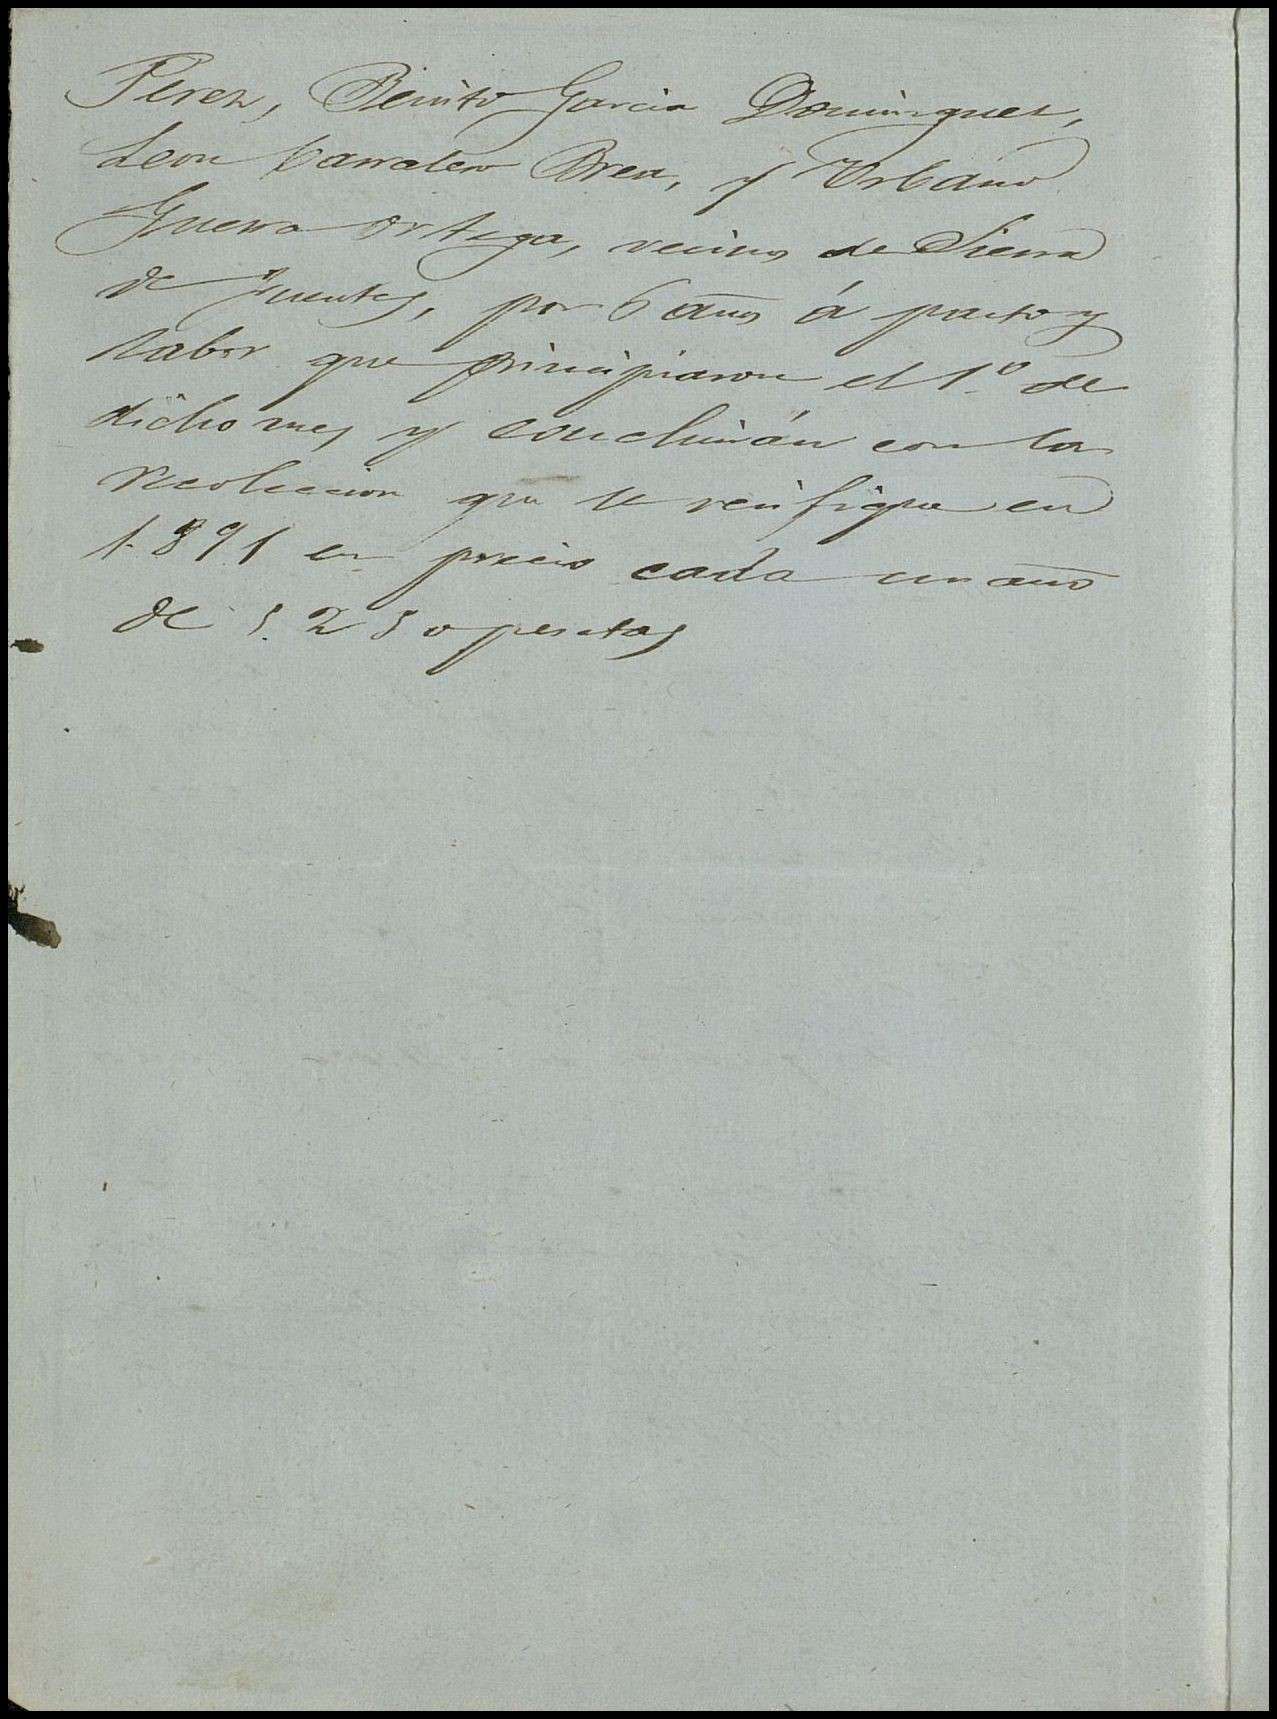 Perez, Benito Garcia Dominguez,
Leon Carratero Brea, y Urbano
Guerra Ortega, vecinos de Sierra
de Fuentes, por 6 años á pasto y
labor que principiaron el 1º de
dicho mes y concluirán con la
recoleccion que se verifique en
1.891 en precio cada un año
de 5.250 pesetas